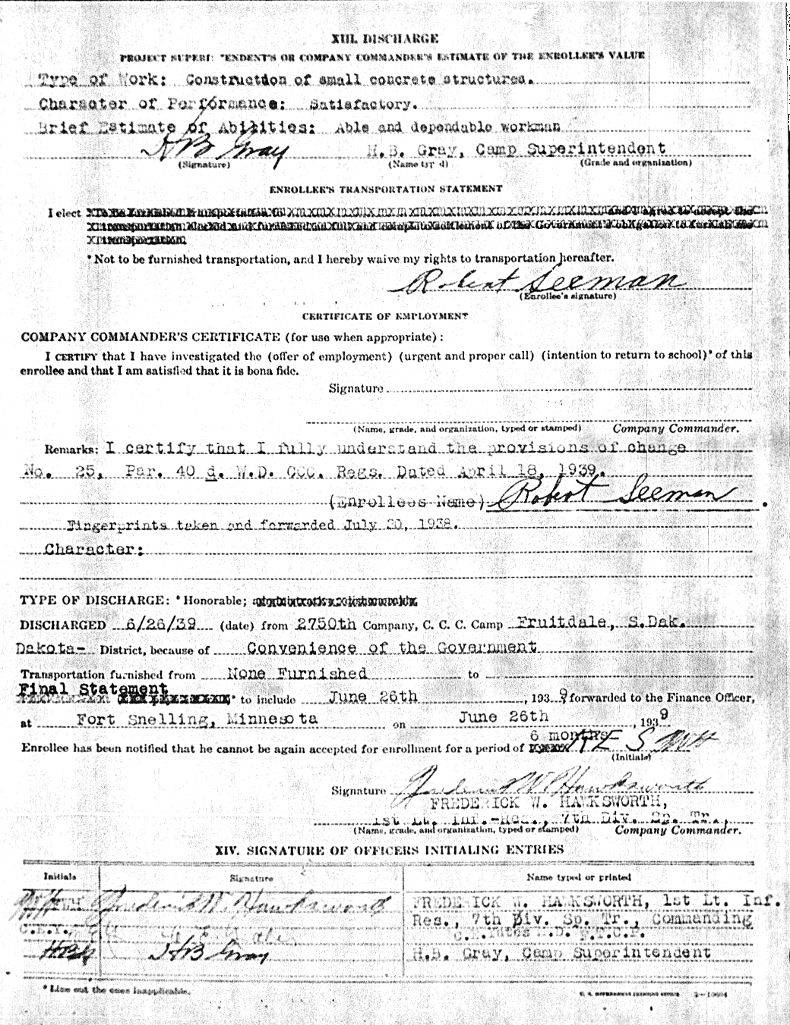 XIII. DISCHARGE
PROJECT SUPERINTENDENT'S OR COMPANY COMMANDER'S ESTIMATE OF THE ENROLLEE'S VALUE
Type of Work: Construction of small concrete structures.
Character of Performance: Satisfactory.
Brief Estimate of Abilities: Able and dependable workman
H B Gray H.B. Gray, Camp Superintendent
(Signature) (Name typed) (Grade and organization)
ENROLLEE'S TRANSPORTATION STATEMENT
I elect and I agree to accept the
transportation and complete settlement of the Government's obligation to furnish me
transportation.
* Not to be furnished transportation, and I hereby waive my rights to transportation hereafter.
Robert Seeman
(Enrollee's signature)
CERTIFICATE OF EMPLOYMENT
COMPANY COMMANDER'S CERTIFICATE (for use when appropriate):
I CERTIFY that I have investigated the (offer of employment) (urgent and proper call) (intention to return to school)* of this
enrollee and that I am satisfied that it is bona fide.
Signature
(Name, grade, and organization, typed or stamped) Company Commander.
Remarks: I certify that I fully understand the provisions of change
No. 25, Par. 40 d. W.D. CCC. Regs. Dated April 18, 1939.
(Enrollees Name) Robert Seeman.
Fingerprints taken and forwarded July 20, 1938.
Character:
TYPE OF DISCHARGE: * Honorable;
DISCHARGED 6/26/39 (date) from 2750th Company, C. C. C. Camp Fruitdale, S.Dak.
Dakota- District, because of Convenience of the Government
Transportation furnished from None Furnished to
Final Statement
* to include June 26th, 1939, forwarded to the Finance Officer,
at Fort Snelling, Minnesota on June 26th, 1939
6 months
Enrollee has been notified that he cannot be again accepted for enrollment for a period of R E S
(Initials)
Signature Frederick W. Hawksworth
FREDERICK W. HAWKSWORTH,
1st Lt. Inf.-Res., 7th Div. Sp. Tr.,
(Name, grade, and organization, typed or stamped) Company Commander.
XIV. SIGNATURE OF OFFICERS INITIALING ENTRIES
Initials Signature Name typed or printed
FWH Frederick W. Hawksworth FREDERICK W. HAWKSWORTH, 1st Lt. Inf.
Res., 7th Div. Sp. Tr., Commanding
C.E.Y. Yates
HBG H B Gray H.B. Gray, Camp Superintendent
* Line out the ones inapplicable.
U. S. GOVERNMENT PRINTING OFFICE